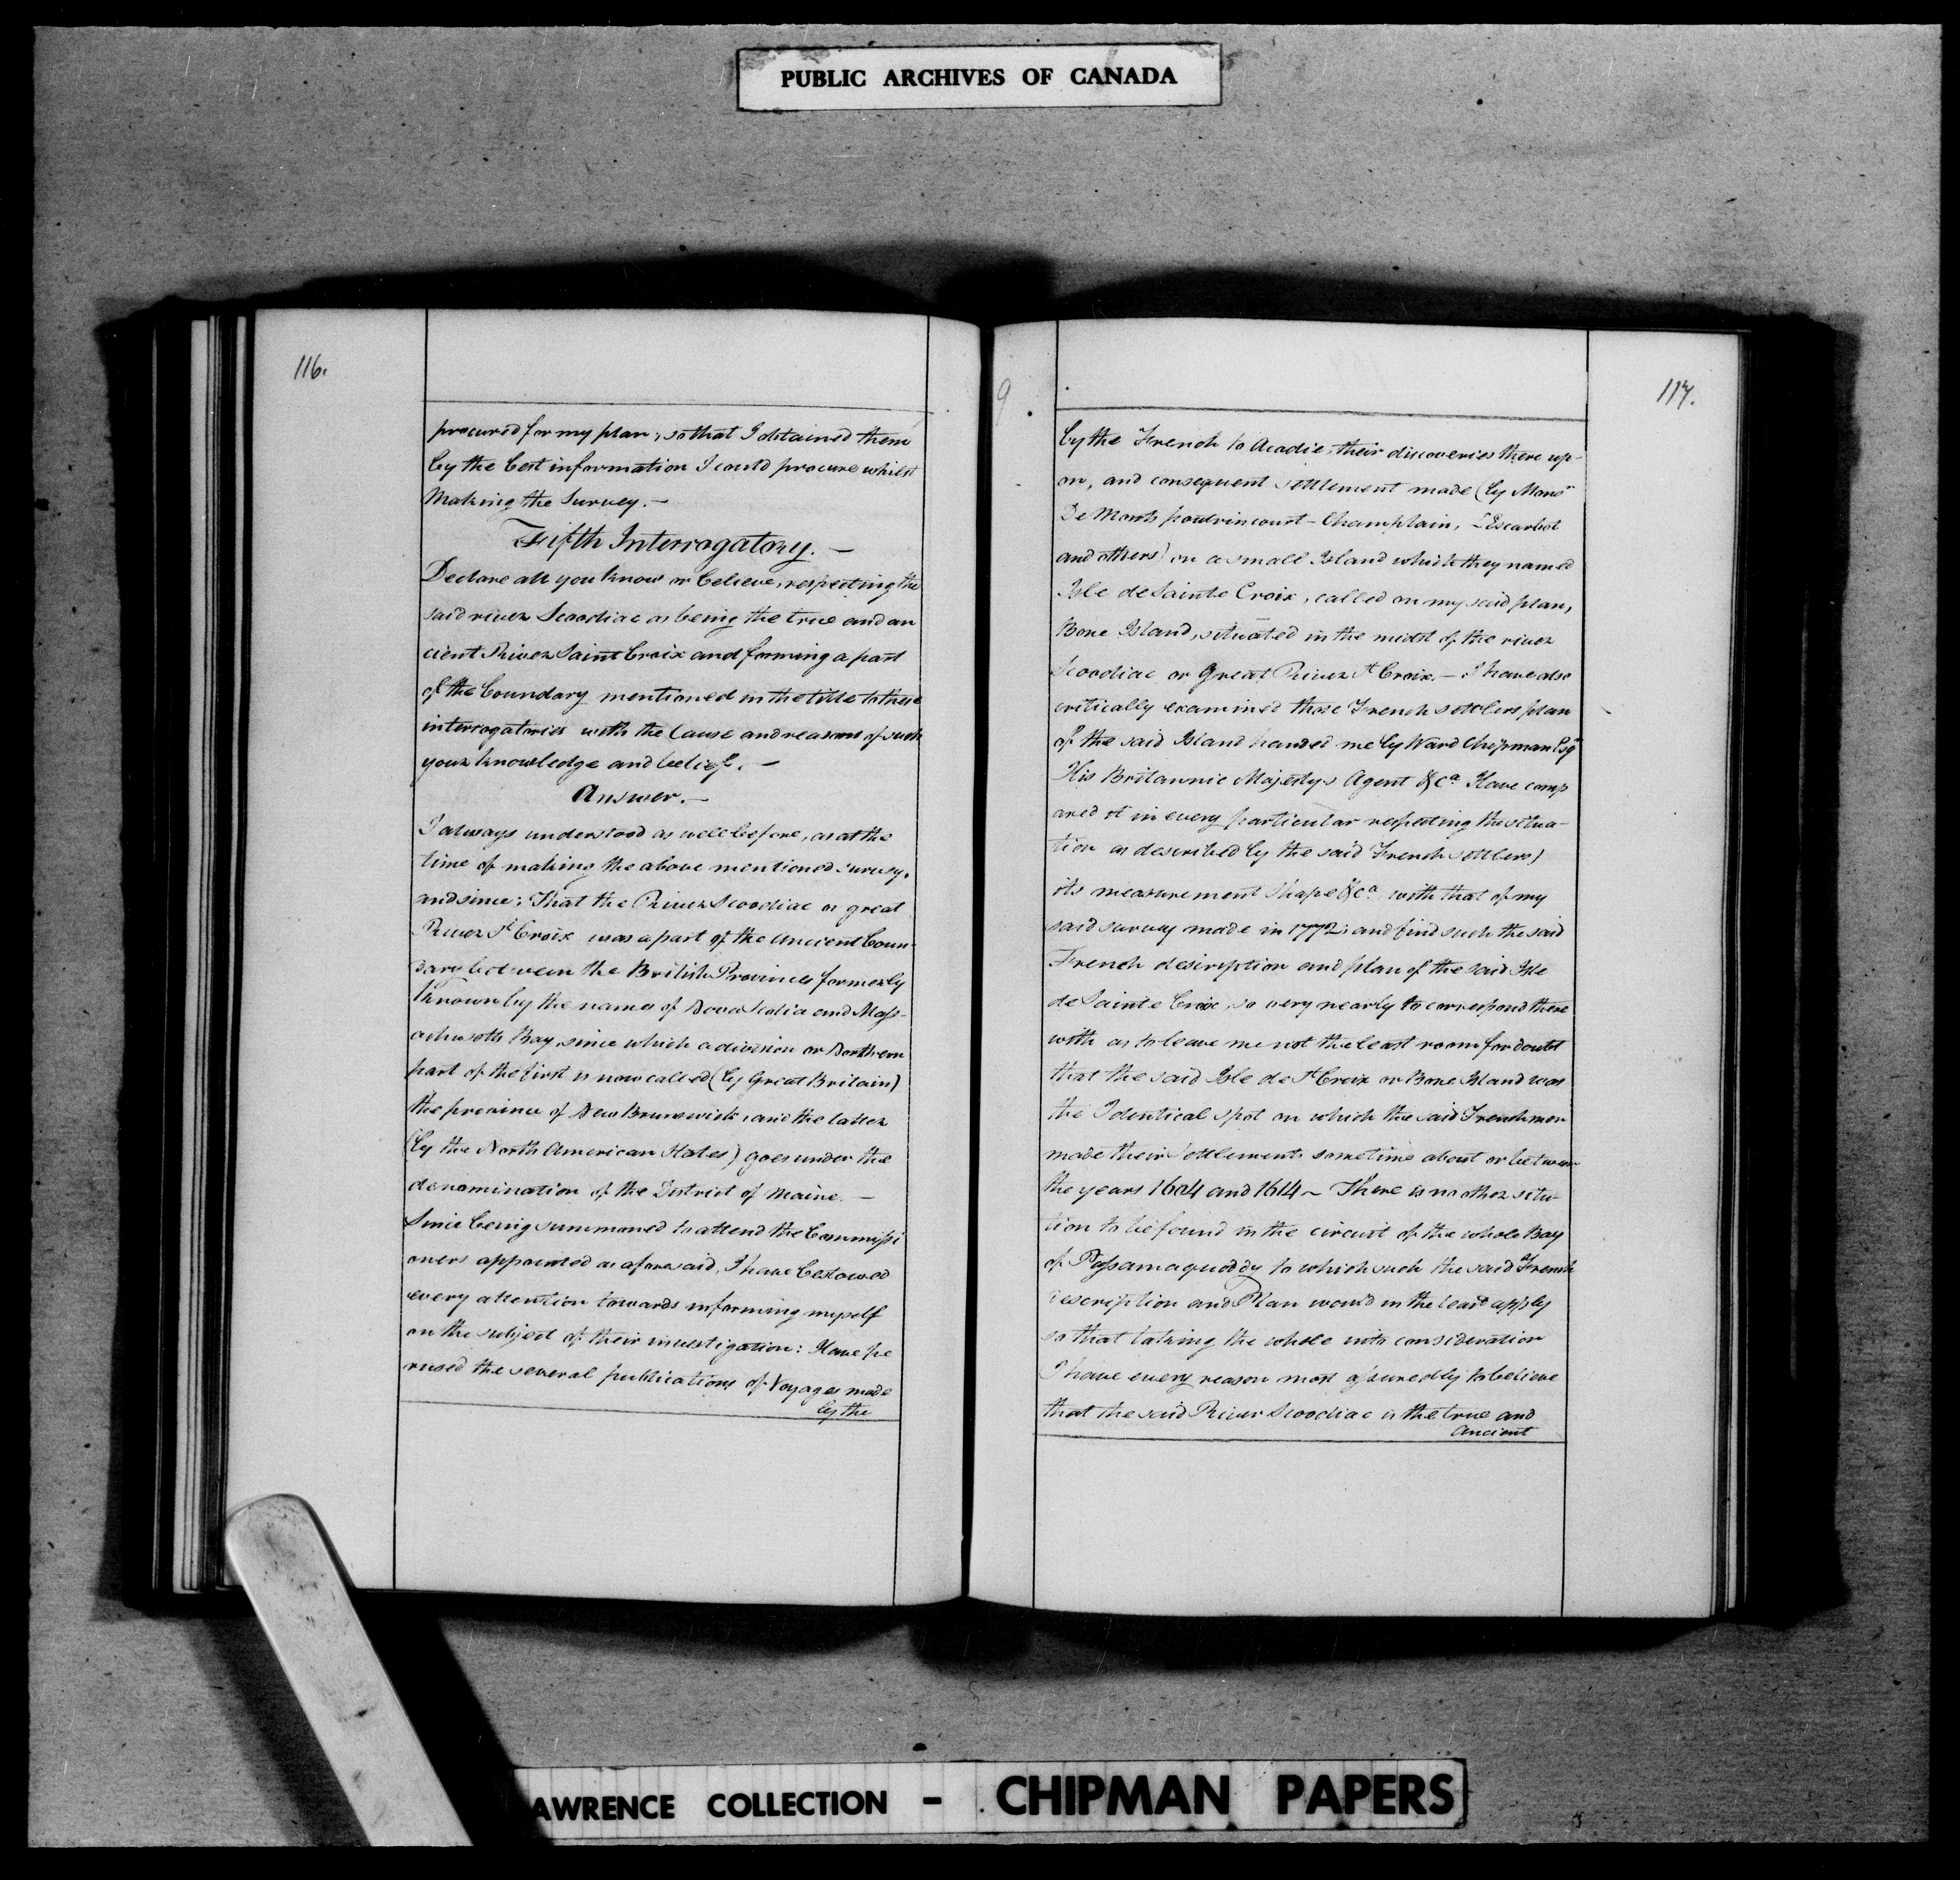 PUBLIC ARCHIVES OF CANADA
116.
procured for my plan, so that I obtained them
by the best information I could procure whilst
Making the Survey. —
Fifth Interrogatory. —
Declare all you know or believe, respecting the
said river Scoodiac as being the true and an
cient River Saint Croix and forming a part
of the boundary mentioned in the title to these
interrogatories with the Cause and reasons of such
your knowledge and belief. —
Answer. —
I always understood as well before, as at the
time of making the above mentioned survey,
and since; That the River Scoodiac or great
River St Croix was a part of the Ancient Boun-
dary between the British Provinces formerly
known by the names of Nova Scotia and Mass-
achusetts Bay, since which a division or Northern
part of the first is now called (by Great Britain)
the province of New Brunswick, and the latter
(by the North American States) goes under the
denomination of the District of Maine. —
Since being summoned to attend the Commissi
oners appointed as aforesaid, I have bestowed
every attention towards informing myself
on the subject of their investigation: Have pe
rused the several publications of Voyages made
by the
9
117.
by the French to Acadie, their discoveries there up-
on, and consequent settlement made (by Monsr
De Monts poutrincourt - Champlain, LEscarbot
and others) on a small Island which they named
Isle de Sainte Croix, called on my said plan,
Bone Island, situated in the midst of the river
Scoodiac or Great River St Croix. — I have also
critically examined those French settlers plan
of the said Island handed me by Ward Chipman Esqr
His Britannic Majestys Agent &ca Have comp
ared it in every particular respecting the situa-
tion as described by the said French settlers)
its measurement Shape &ca with that of my
said survey made in 1772; and find such the said
French description and plan of the said Isle
de Sainte Croix, so very nearly to correspond there
with as to leave me not the least room for doubt
that the said Isle de St Croix or Bone Island was
the Identical spot on which the said Frenchmen
made their Settlements sometime about or between
the years 1604 and 1614 ~ There is no other situ-
tion to be found in the circuit of the whole Bay
of Passamaquoddy to which such the said French
description and Plan would in the least apply
so that taking the whole into consideration
I have every reason most assuredly to believe
that the said River Scoodiac is the true and
Ancient
AWRENCE COLLECTION - CHIPMAN PAPERS